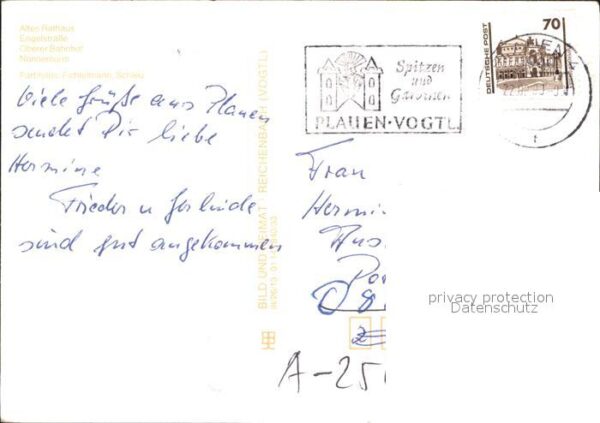 Altes Rathaus
Engelstraße
Oberer Bahnhof
Nonnenturm
Farbfoto: Fichtelmann, Schau
Viele Grüße aus Plauen
sendet Dir liebe
Hermine
Frieder u Gerlinde
sind gut angekommen
BILD UND HEIMAT REICHENBACH (VOGTL)
Spitzen
und
Gardinen
PLAUEN·VOGTL
DEUTSCHE POST
70
Frau
Hermi
A-25
privacy protection
Datenschutz